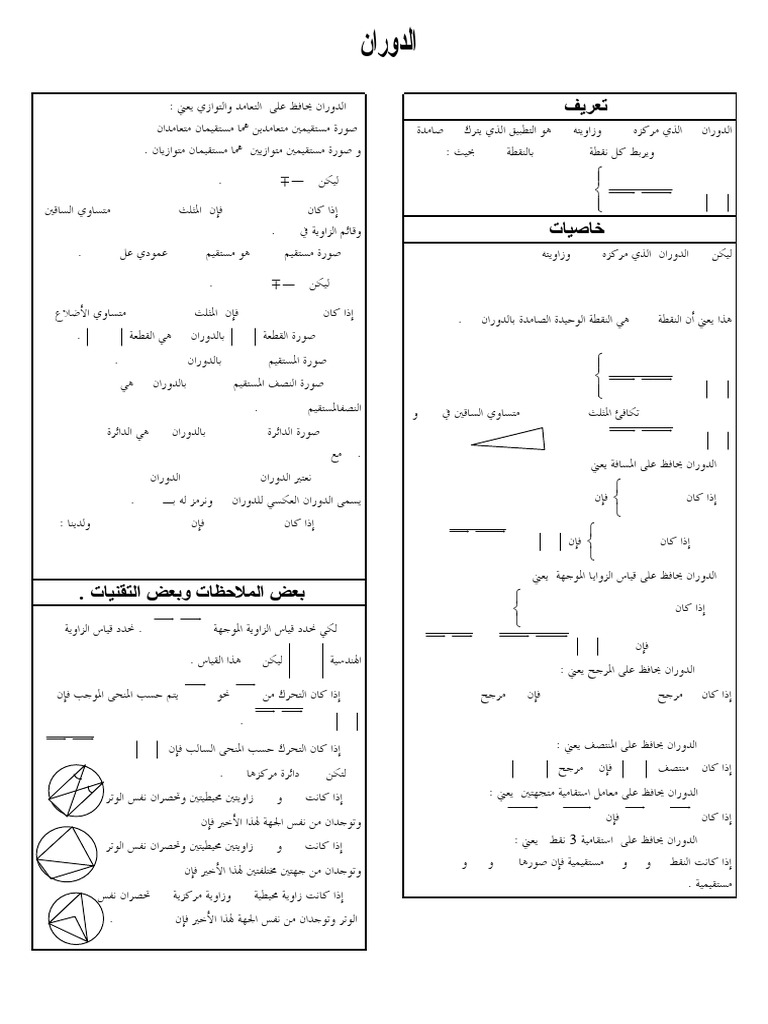 الدوران
تعريف
الدوران الذي مركزه وزاويته هو التطبيق الذي يترك صامدة
ويربط كل نقطة بالنقطة بحيث :
خاصيات
ليكن الدوران الذي مركزه وزاويته
هذا يعني أن النقطة هي النقطة الوحيدة الصامدة بالدوران .
تكافئ المثلث متساوي الساقين في و
الدوران يحافظ على المسافة يعني
إذا كان فإن
إذا كان فإن
الدوران يحافظ على قياس الزوايا الموجهة يعني
إذا كان
فإن
الدوران يحافظ على المرجح يعني :
إذا كان مرجح فإن مرجح
الدوران يحافظ على المنتصف يعني :
إذا كان منتصف فإن مرجح
الدوران يحافظ على معامل استقامية متجهتين يعني :
إذا كان فإن
الدوران يحافظ على استقامية 3 نقط يعني :
إذا كانت النقط و و مستقيمية فإن صورها و و
مستقيمية .
الدوران يحافظ على التعامد والتوازي يعني :
صورة مستقيمين متعامدين هما مستقيمان متعامدان
و صورة مستقيمين متوازيين هما مستقيمان متوازيان .
ليكن ∓ .
إذا كان فإن المثلث متساوي الساقين
وقائم الزاوية في .
صورة مستقيم هو مستقيم عمودي عل .
ليكن ∓ .
إذا كان فإن المثلث متساوي الأضلاع
صورة القطعة بالدوران هي القطعة .
صورة المستقيم بالدوران .
صورة النصف المستقيم بالدوران هي
النصفالمستقيم .
صورة الدائرة بالدوران هي الدائرة
. مع
نعتبر الدوران الدوران
يسمى الدوران العكسي للدوران ونرمز له بـــ .
إذا كان فإن ولدينا :
بعض الملاحظات وبعض التقنيات .
لكي نحدد قياس الزاوية الموجهة . نحدد قياس الزاوية
الهندسية ليكن هذا القياس .
إذا كان التحرك من نحو يتم حسب المنحى الموجب فإن
.
إذا كان التحرك حسب المنحى السالب فإن
لتكن دائرة مركزها .
إذا كانت و زاويتين محيطيتين وتحصران نفس الوتر
وتوجدان من نفس الجهة لهذا الأخير فإن
إذا كانت و زاويتين محيطيتين وتحصران نفس الوتر
وتوجدان من جهتين مختلفتين لهذا الأخير فإن
إذا كانت زاوية محيطية وزاوية مركزية تحصران نفس
الوتر وتوجدان من نفس الجهة لهذا الأخير فإن .